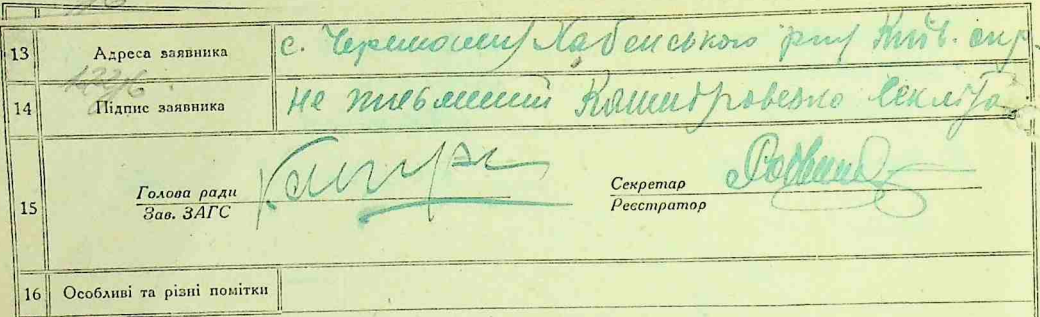 13 Адреса заявника с. Черемошн Хабенського р-ну Київ. окр.
14 Підпис заявника не письменний Кашпровенко Текліта
15 Голова ради
Зав. ЗАГС
Секретар
Реєстратор
16 Особливі та різні помітки